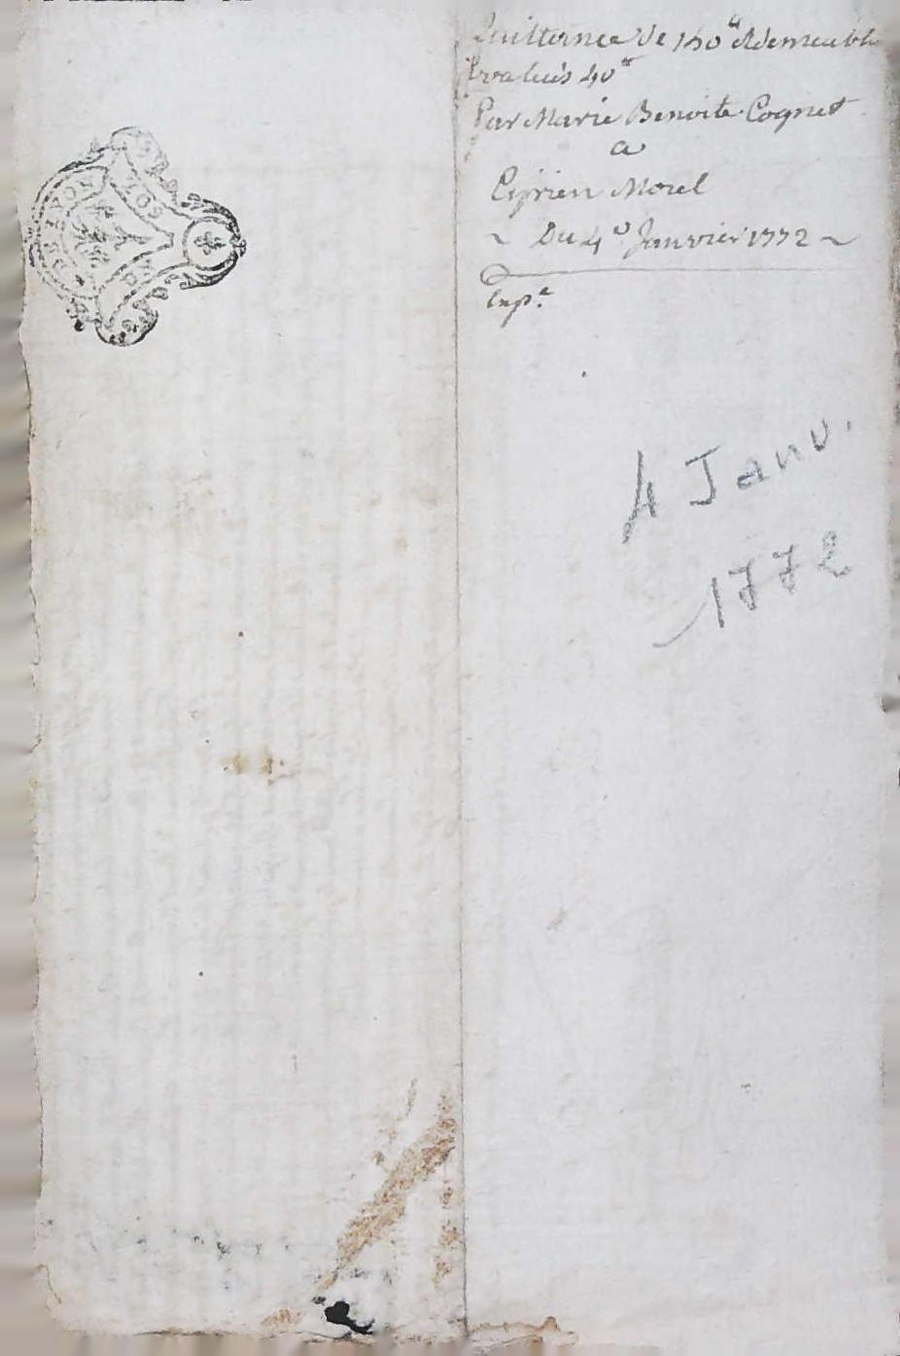 Quittance de 150ᵗᵗ et de meuble
Evalués 40ᵗᵗ
Par Marie Benoite Cognet
a
Ciprien Morel
~ Du 4ᵉ Janvier 1772 ~
Exp.ᵉ
4 Janv.
1772
SOLS